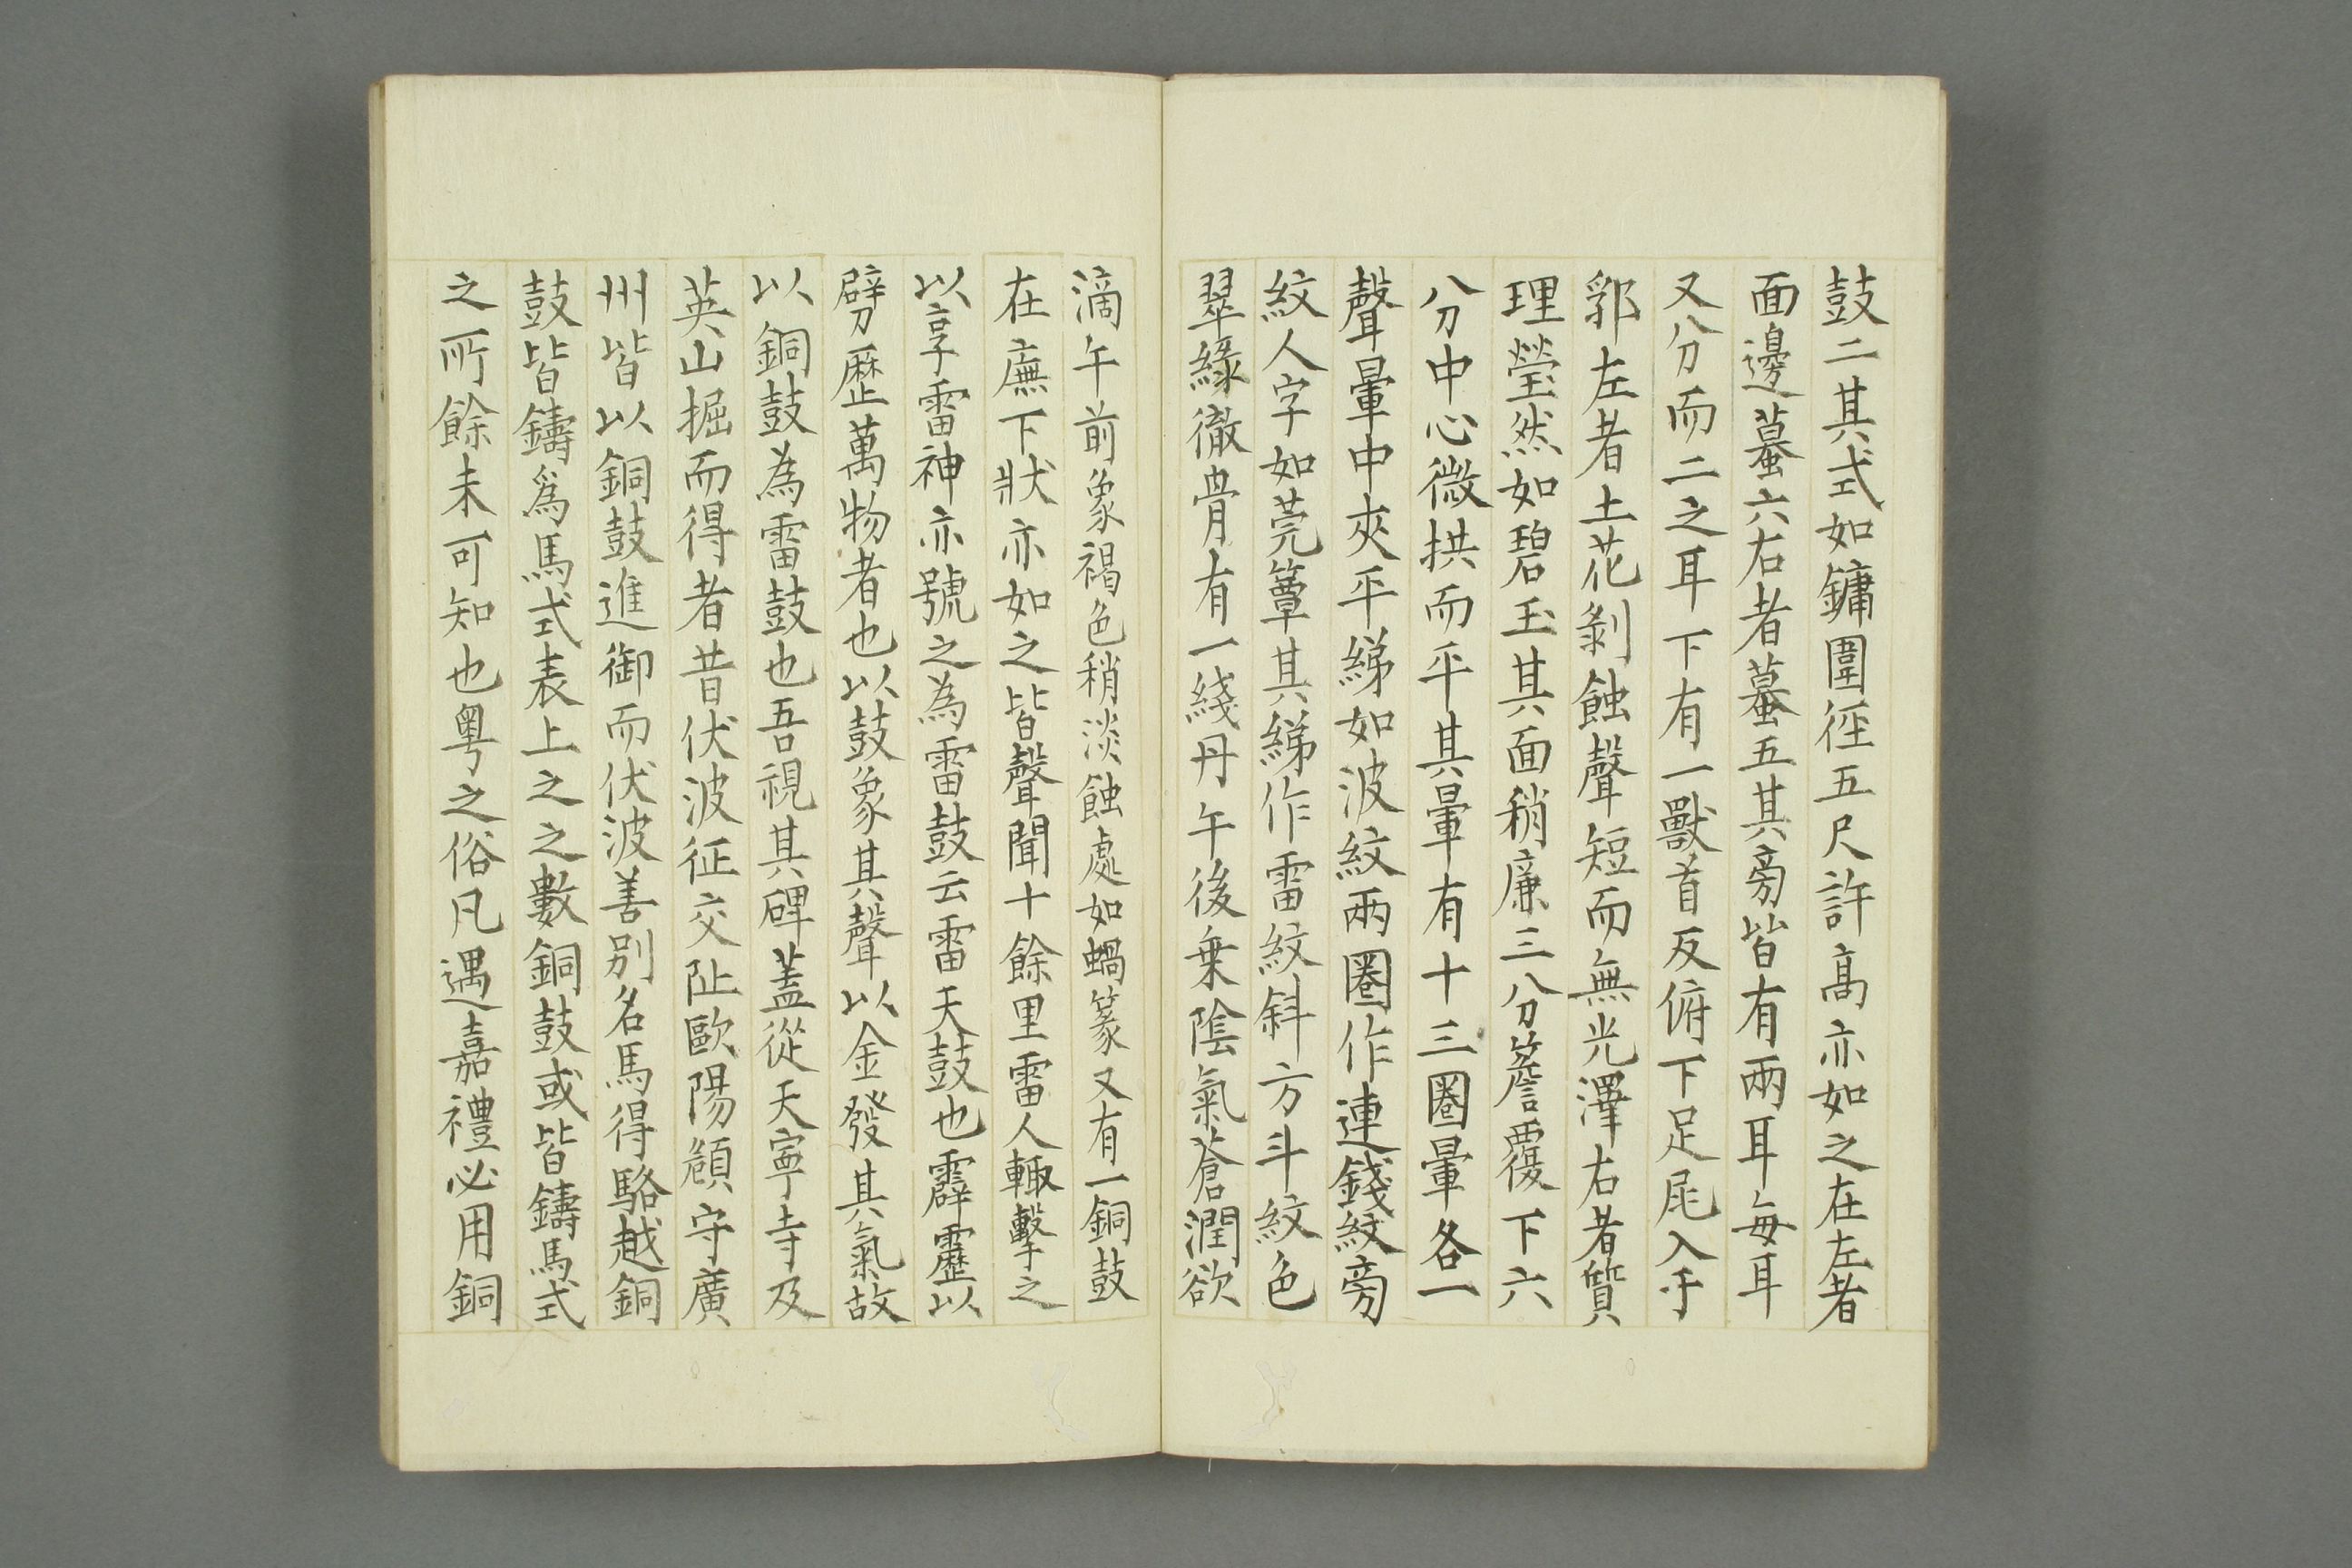 鼓二其式如鏞圍徑五尺許高亦如之在左者
面邊蟇六右者蟇五其旁皆有兩耳每耳
又分而二之耳下有一獸首反俯下足尾入于
郭左者土花剝蝕聲短而無光澤右者質
理瑩然如碧玉其面稍廉三分簷覆下六
八分中心微拱而平其暈有十三圈暈各一
聲暈中夾平綈如波紋兩圈作連錢紋旁
紋人字如莞簟其綈作雷紋斜方斗紋色
翠綠徹骨有一綫丹午後乗陰氣蒼潤欲
滴午前象褐色稍淡蝕處如蝸篆又有一銅鼓
在廡下狀亦如之皆聲聞十餘里雷人輙擊之
以享雷神亦號之為雷鼓云雷天鼓也霹靂以
劈歷萬物者也以鼓象其聲以金發其氣故
以銅鼓為雷鼓也吾視其碑蓋從天寧寺及
英山掘而得者昔伏波征交阯歐陽頠守廣
州皆以銅鼓進御而伏波善別名馬得駱越銅
鼓皆鑄爲馬式表上之之數銅鼓或皆鑄馬式
之所餘未可知也粵之俗凡遇嘉禮必用銅